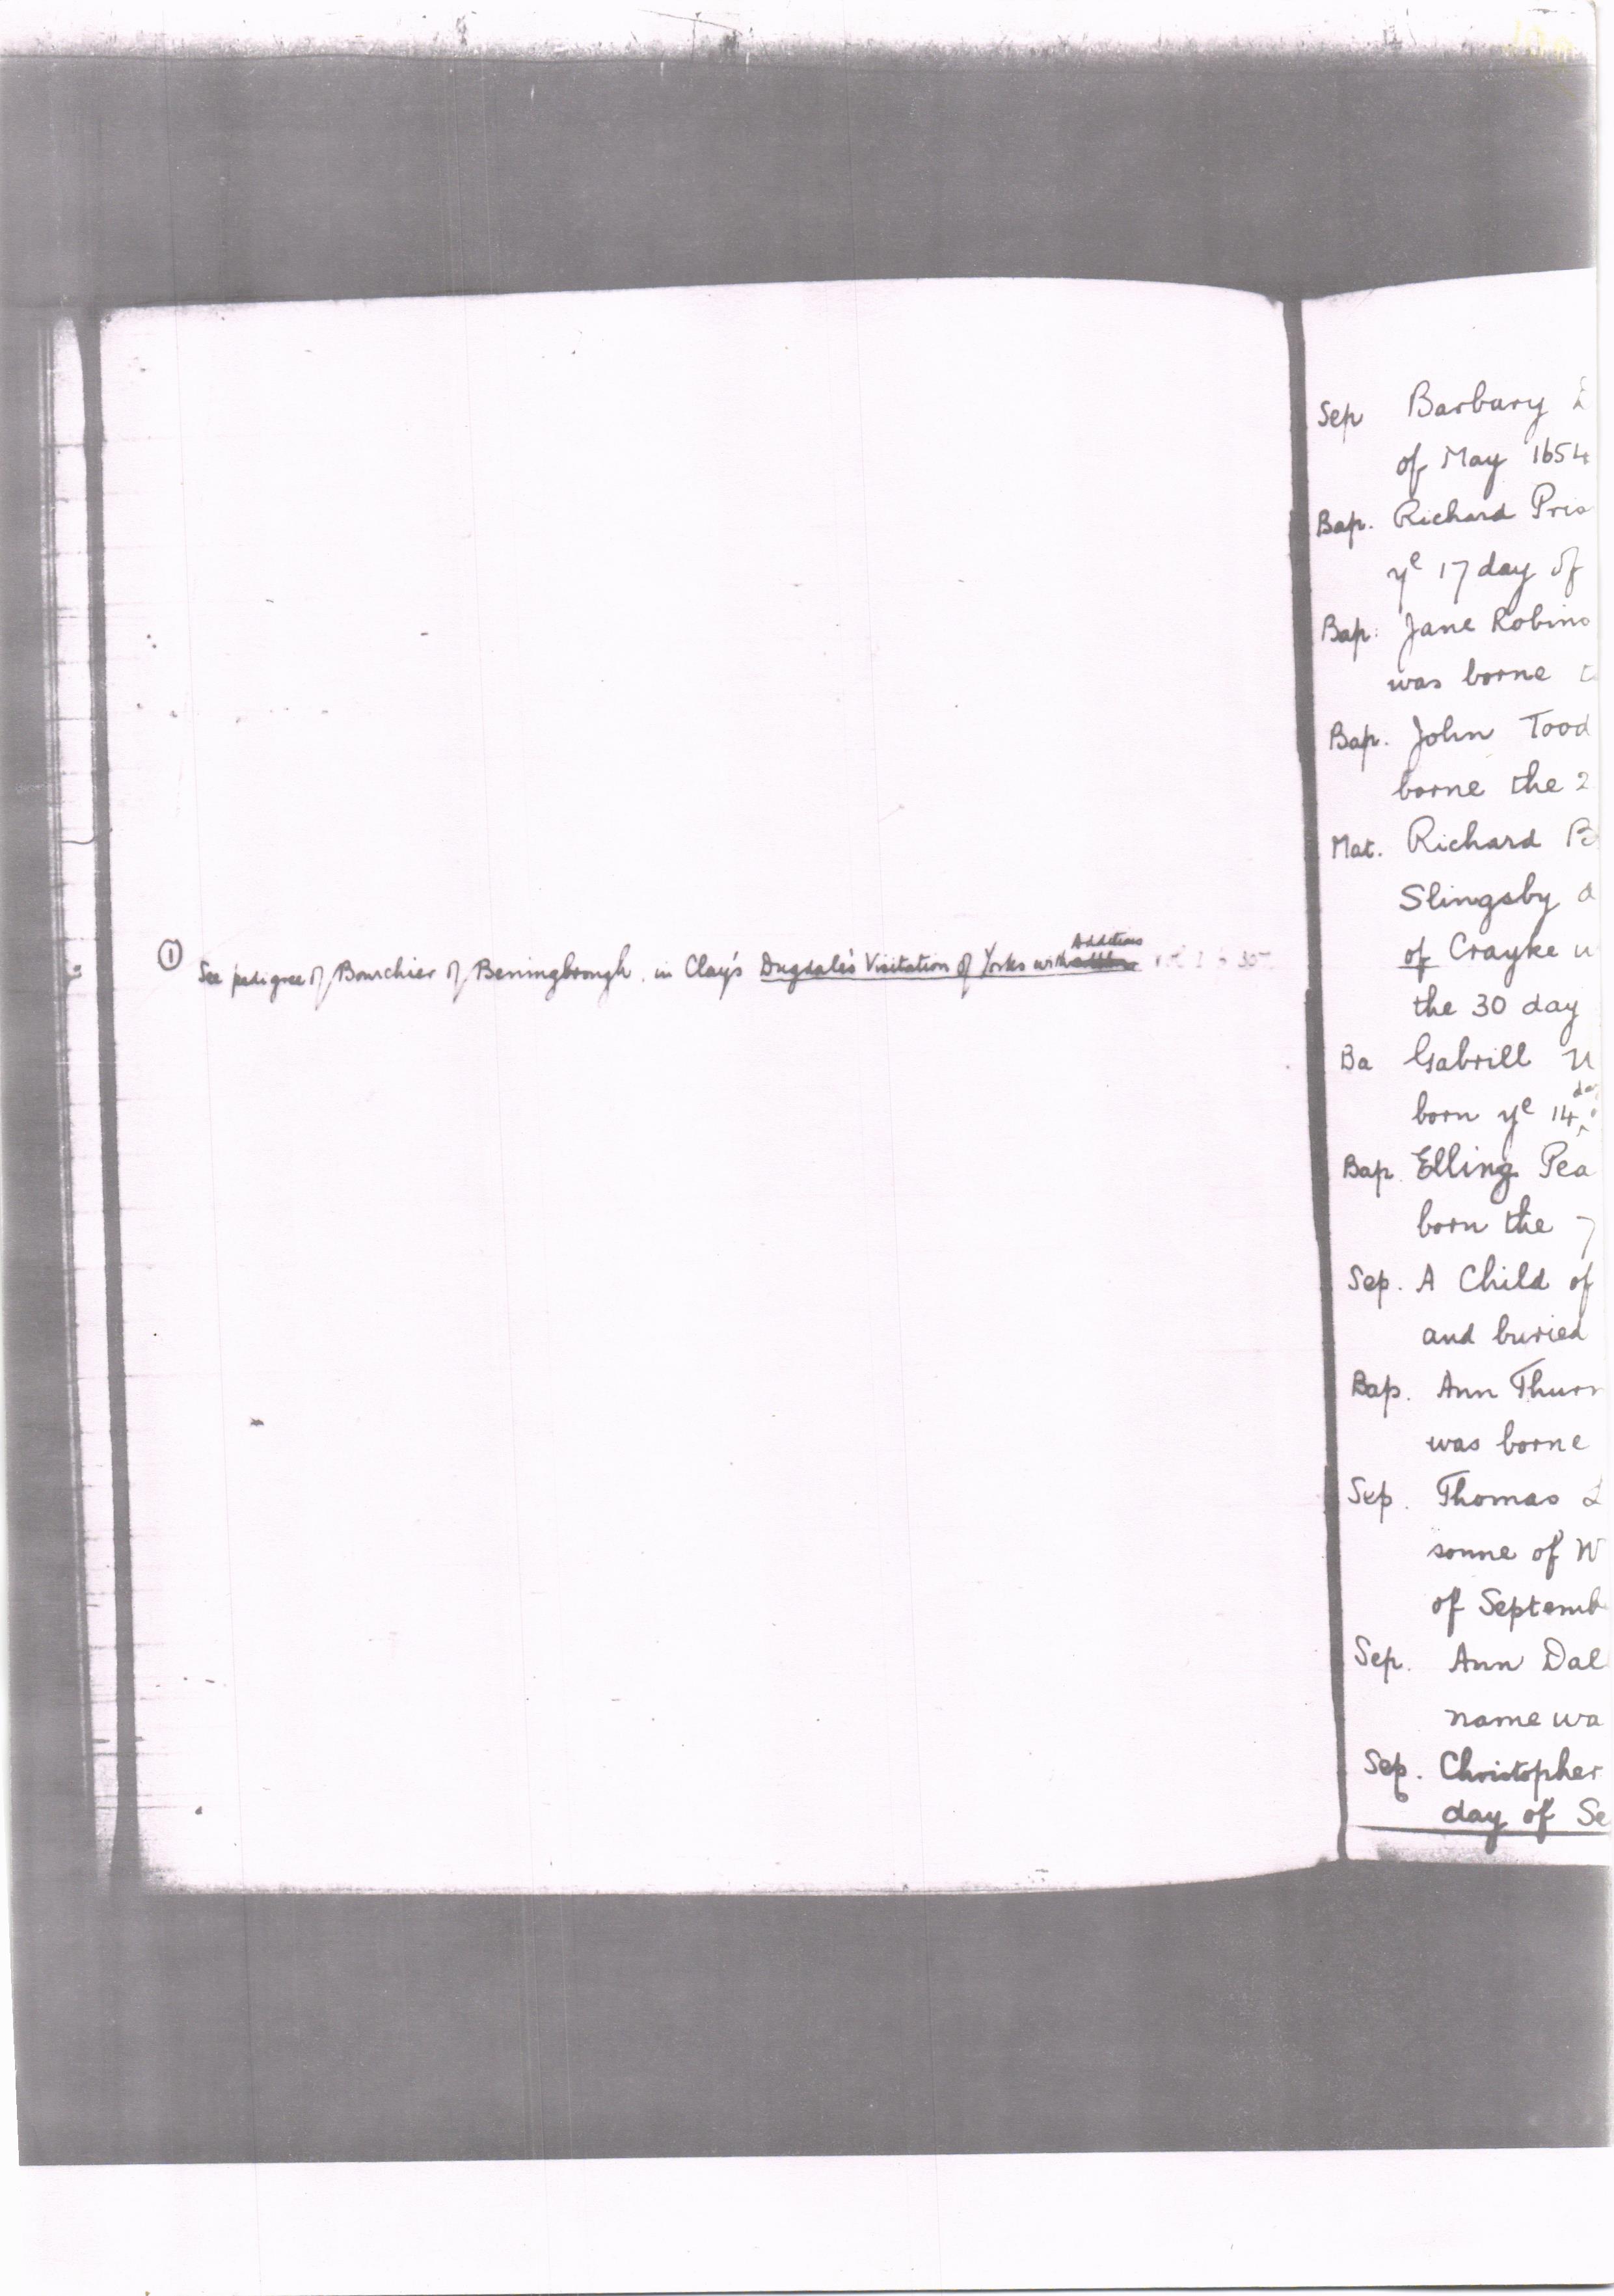 ① See pedigree of Bourchier of Beningbrough. in Clay's Dugdale's Visitation of Yorks with Additions
Sep Barbary
of May 1654
Bap. Richard Pris
yᵉ 17 day of
Bap. Jane Robino
was borne
Bap. John Tood
borne the 2
Mat. Richard
Slingsby
of Crayke
the 30 day
Ba Gabrill
born yᵉ 14
Bap. Elling Pea
born the 7
Sep. A Child of
and buried
Bap. Ann Thurn
was borne
Sep. Thomas
sonne of W
of Septemb
Sep. Ann Dal
name wa
Sep. Christopher
day of Se